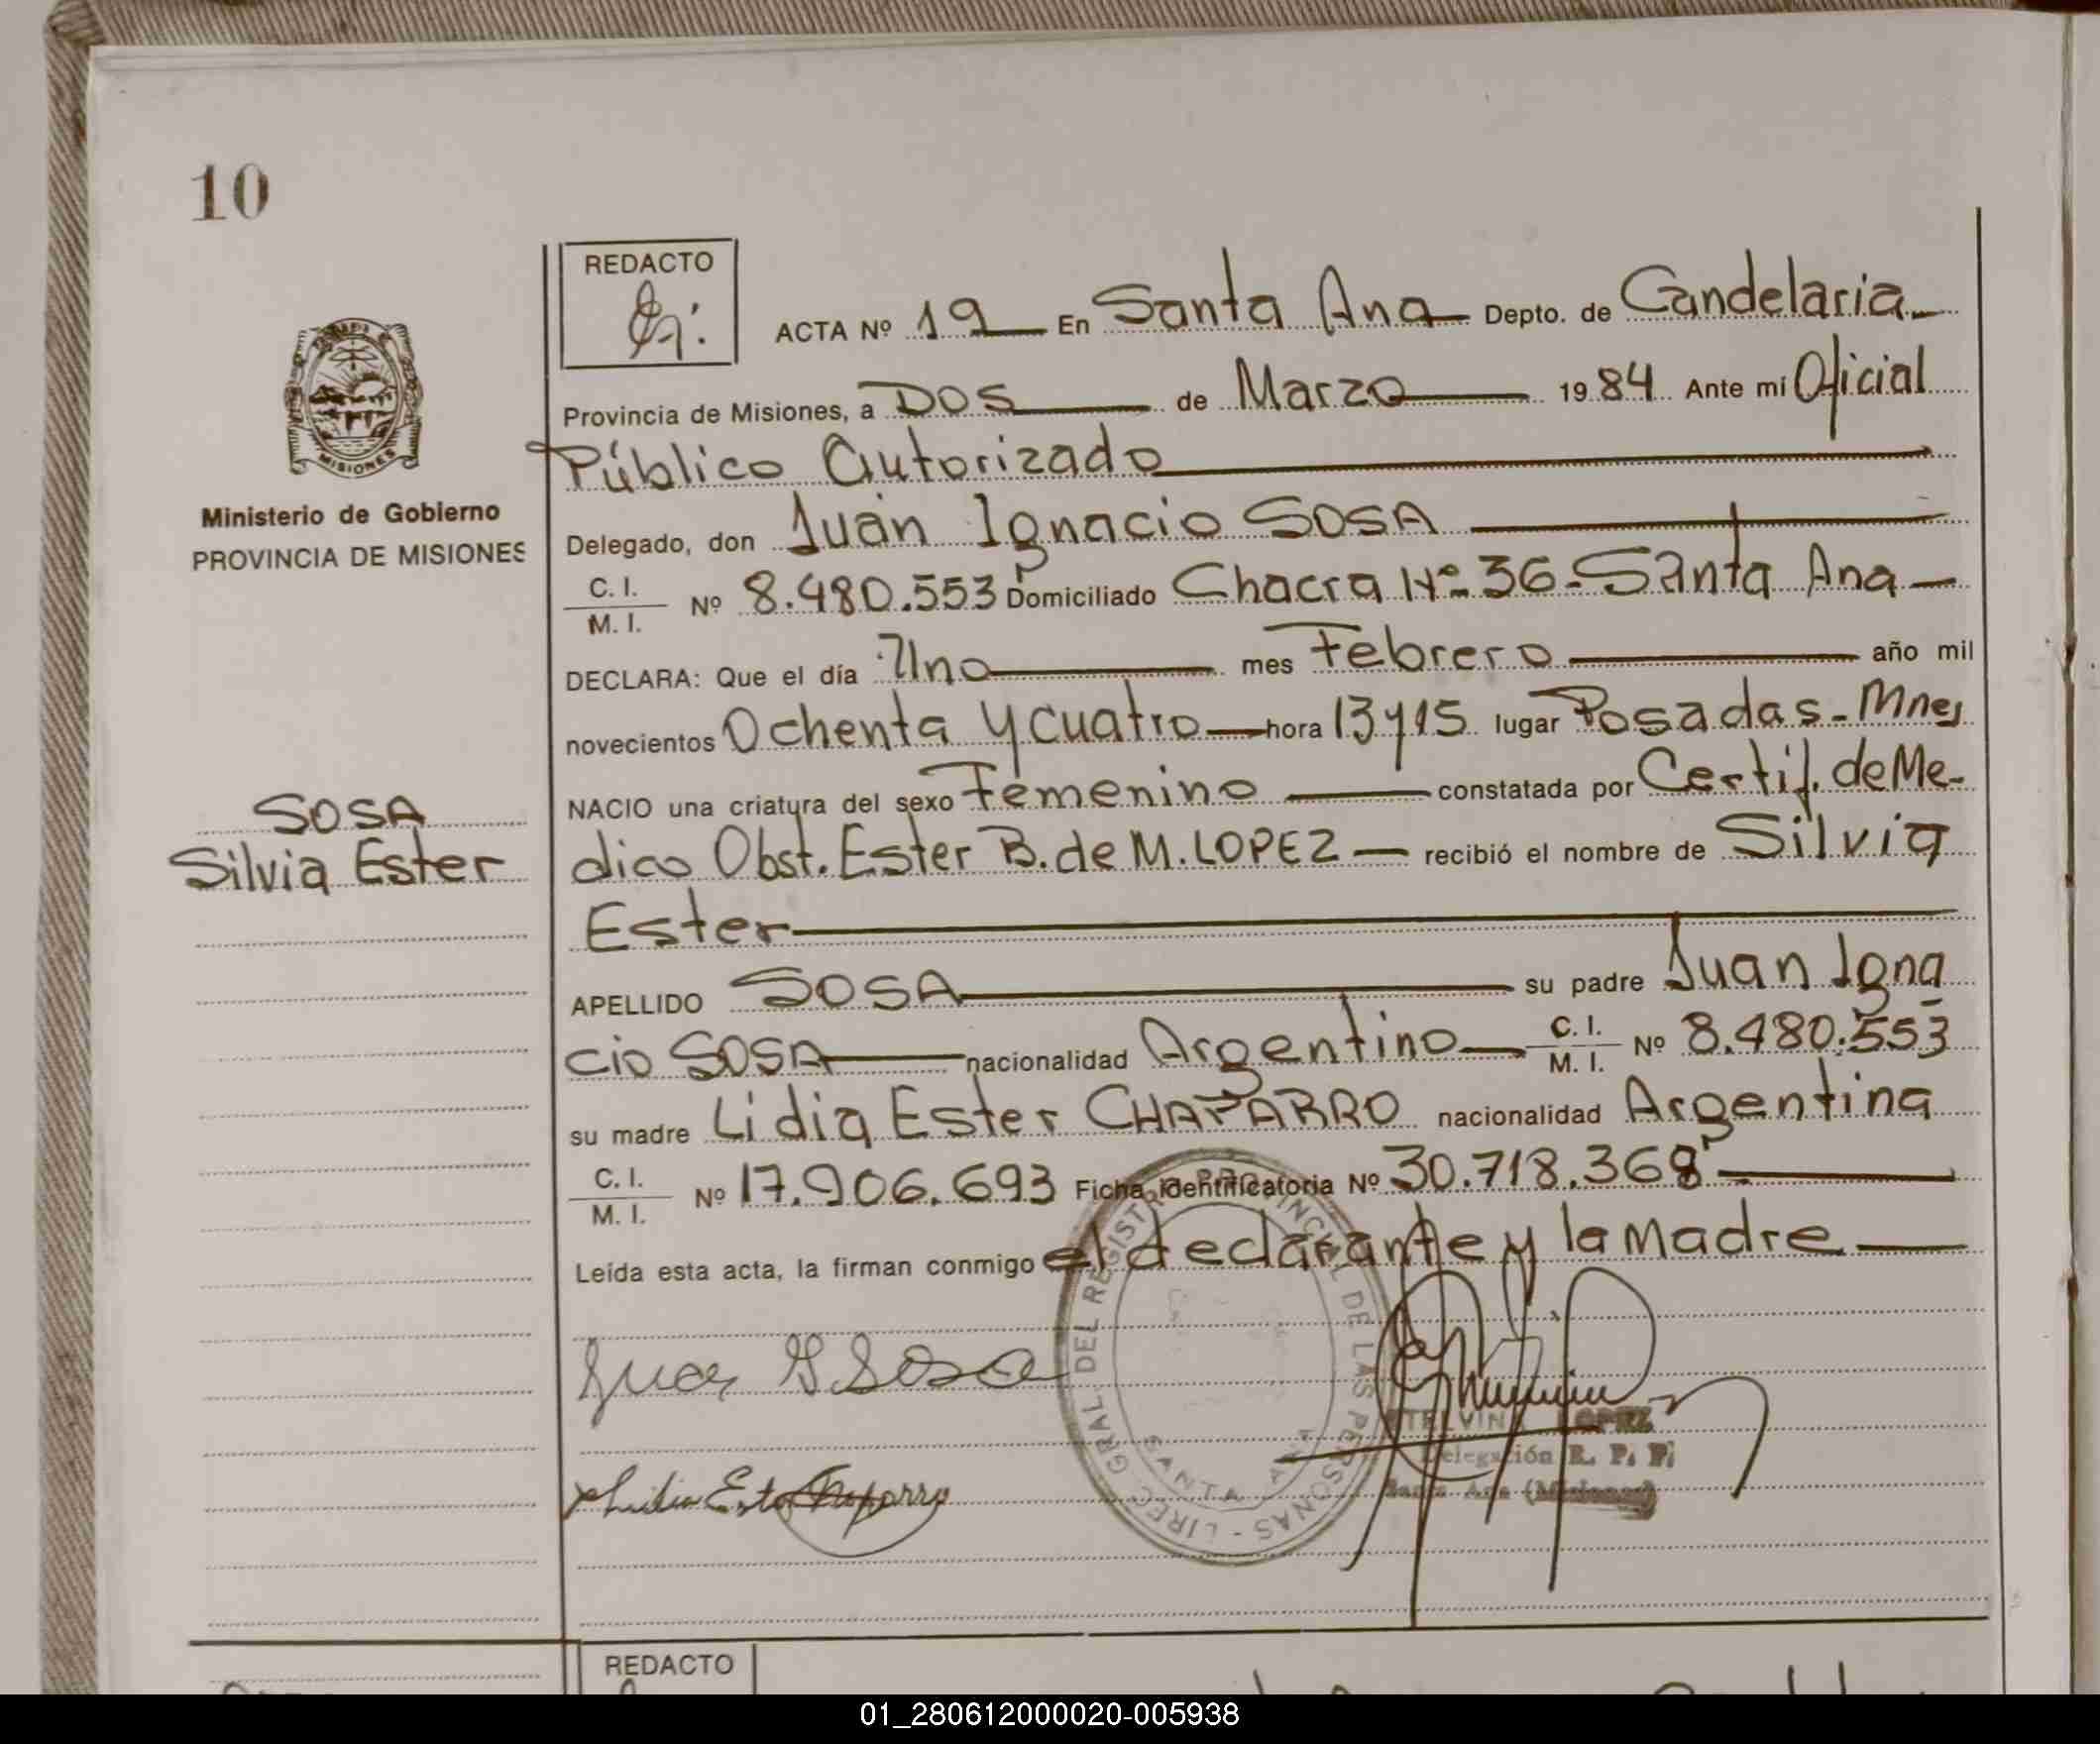 10
REDACTO
ACTA Nº 19 En Santa Ana Depto. de Candelaria
Provincia de Misiones, a DOS de Marzo 1984 Ante mí Oficial
Público Autorizado
MISIONES
Ministerio de Gobierno
PROVINCIA DE MISIONES
Delegado, don Juan Ignacio SOSA
C. I.
M. I. Nº 8.480.553 Domiciliado Chacra Nº 36 - Santa Ana
DECLARA: Que el día Uno mes Febrero año mil
novecientos Ochenta y cuatro hora 13 y 15 lugar Posadas - Mnes
NACIO una criatura del sexo Femenino constatada por Certif. de Me-
SOSA
Silvia Ester
dico Obst. Ester B. de M. LOPEZ recibió el nombre de Silvia
Ester
APELLIDO SOSA su padre Juan Igna
cio SOSA nacionalidad Argentino C. I. M. I. Nº 8.480.553
su madre Lidia Ester CHAPARRO nacionalidad Argentina
C. I.
M. I. Nº 17.906.693 Ficha identificatoria Nº 30.718.368
Leída esta acta, la firman conmigo el declarante y la Madre
Juan I Sosa
Lidia Ester Chaparro
SANTA ANA
LOPEZ
Delegación R. P. P.
Santa Ana (Misiones)
REDACTO
01_280612000020-005938